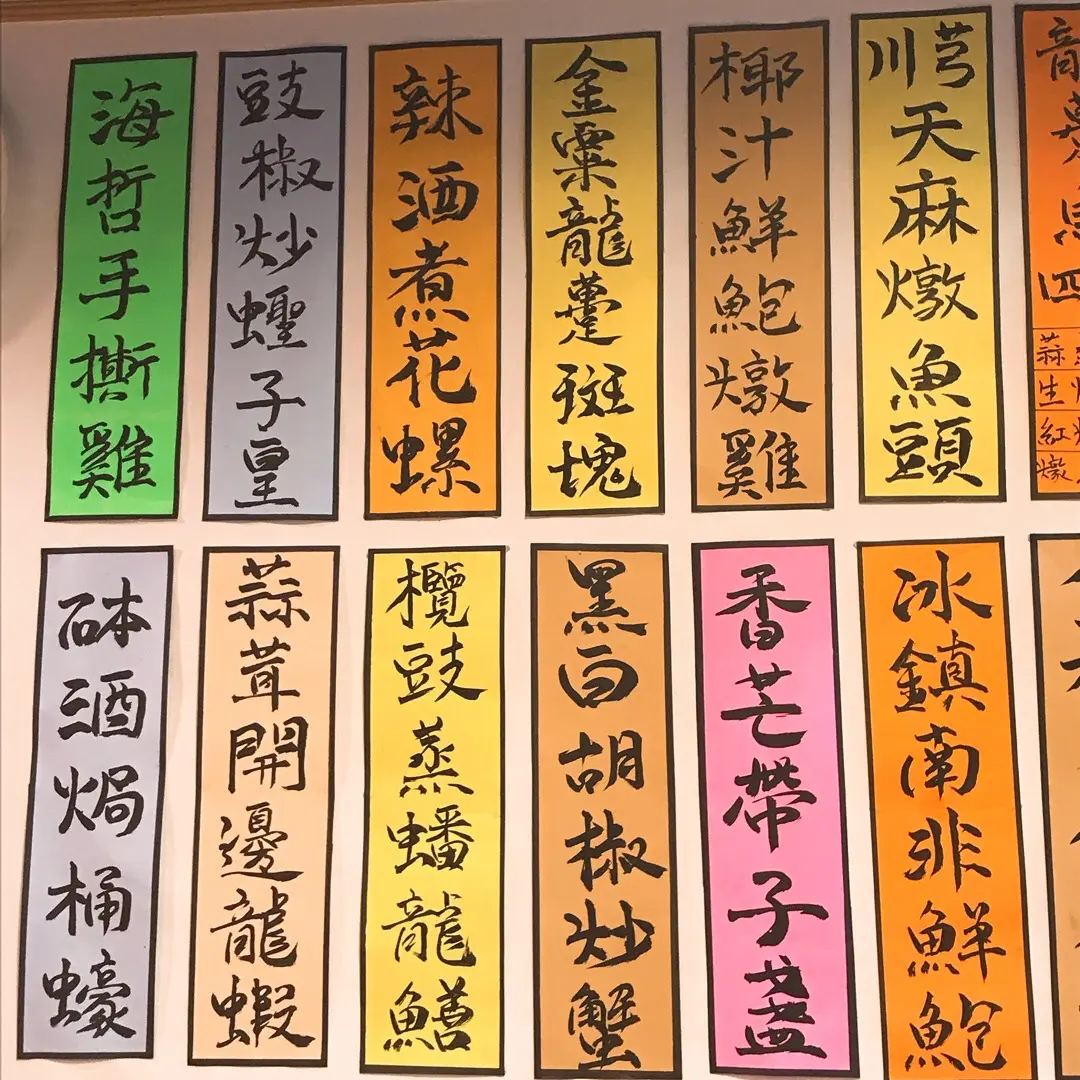 海哲手撕雞
豉椒炒蟶子皇
辣酒煮花螺
金粟龍躉斑塊
椰汁鮮鮑燉雞
川芎天麻燉魚頭
砵酒焗桶蠔
蒜茸開邊龍蝦
欖豉蒸蟠龍鱔
黑白胡椒炒蟹
香芒帶子盞
冰鎮南非鮮鮑